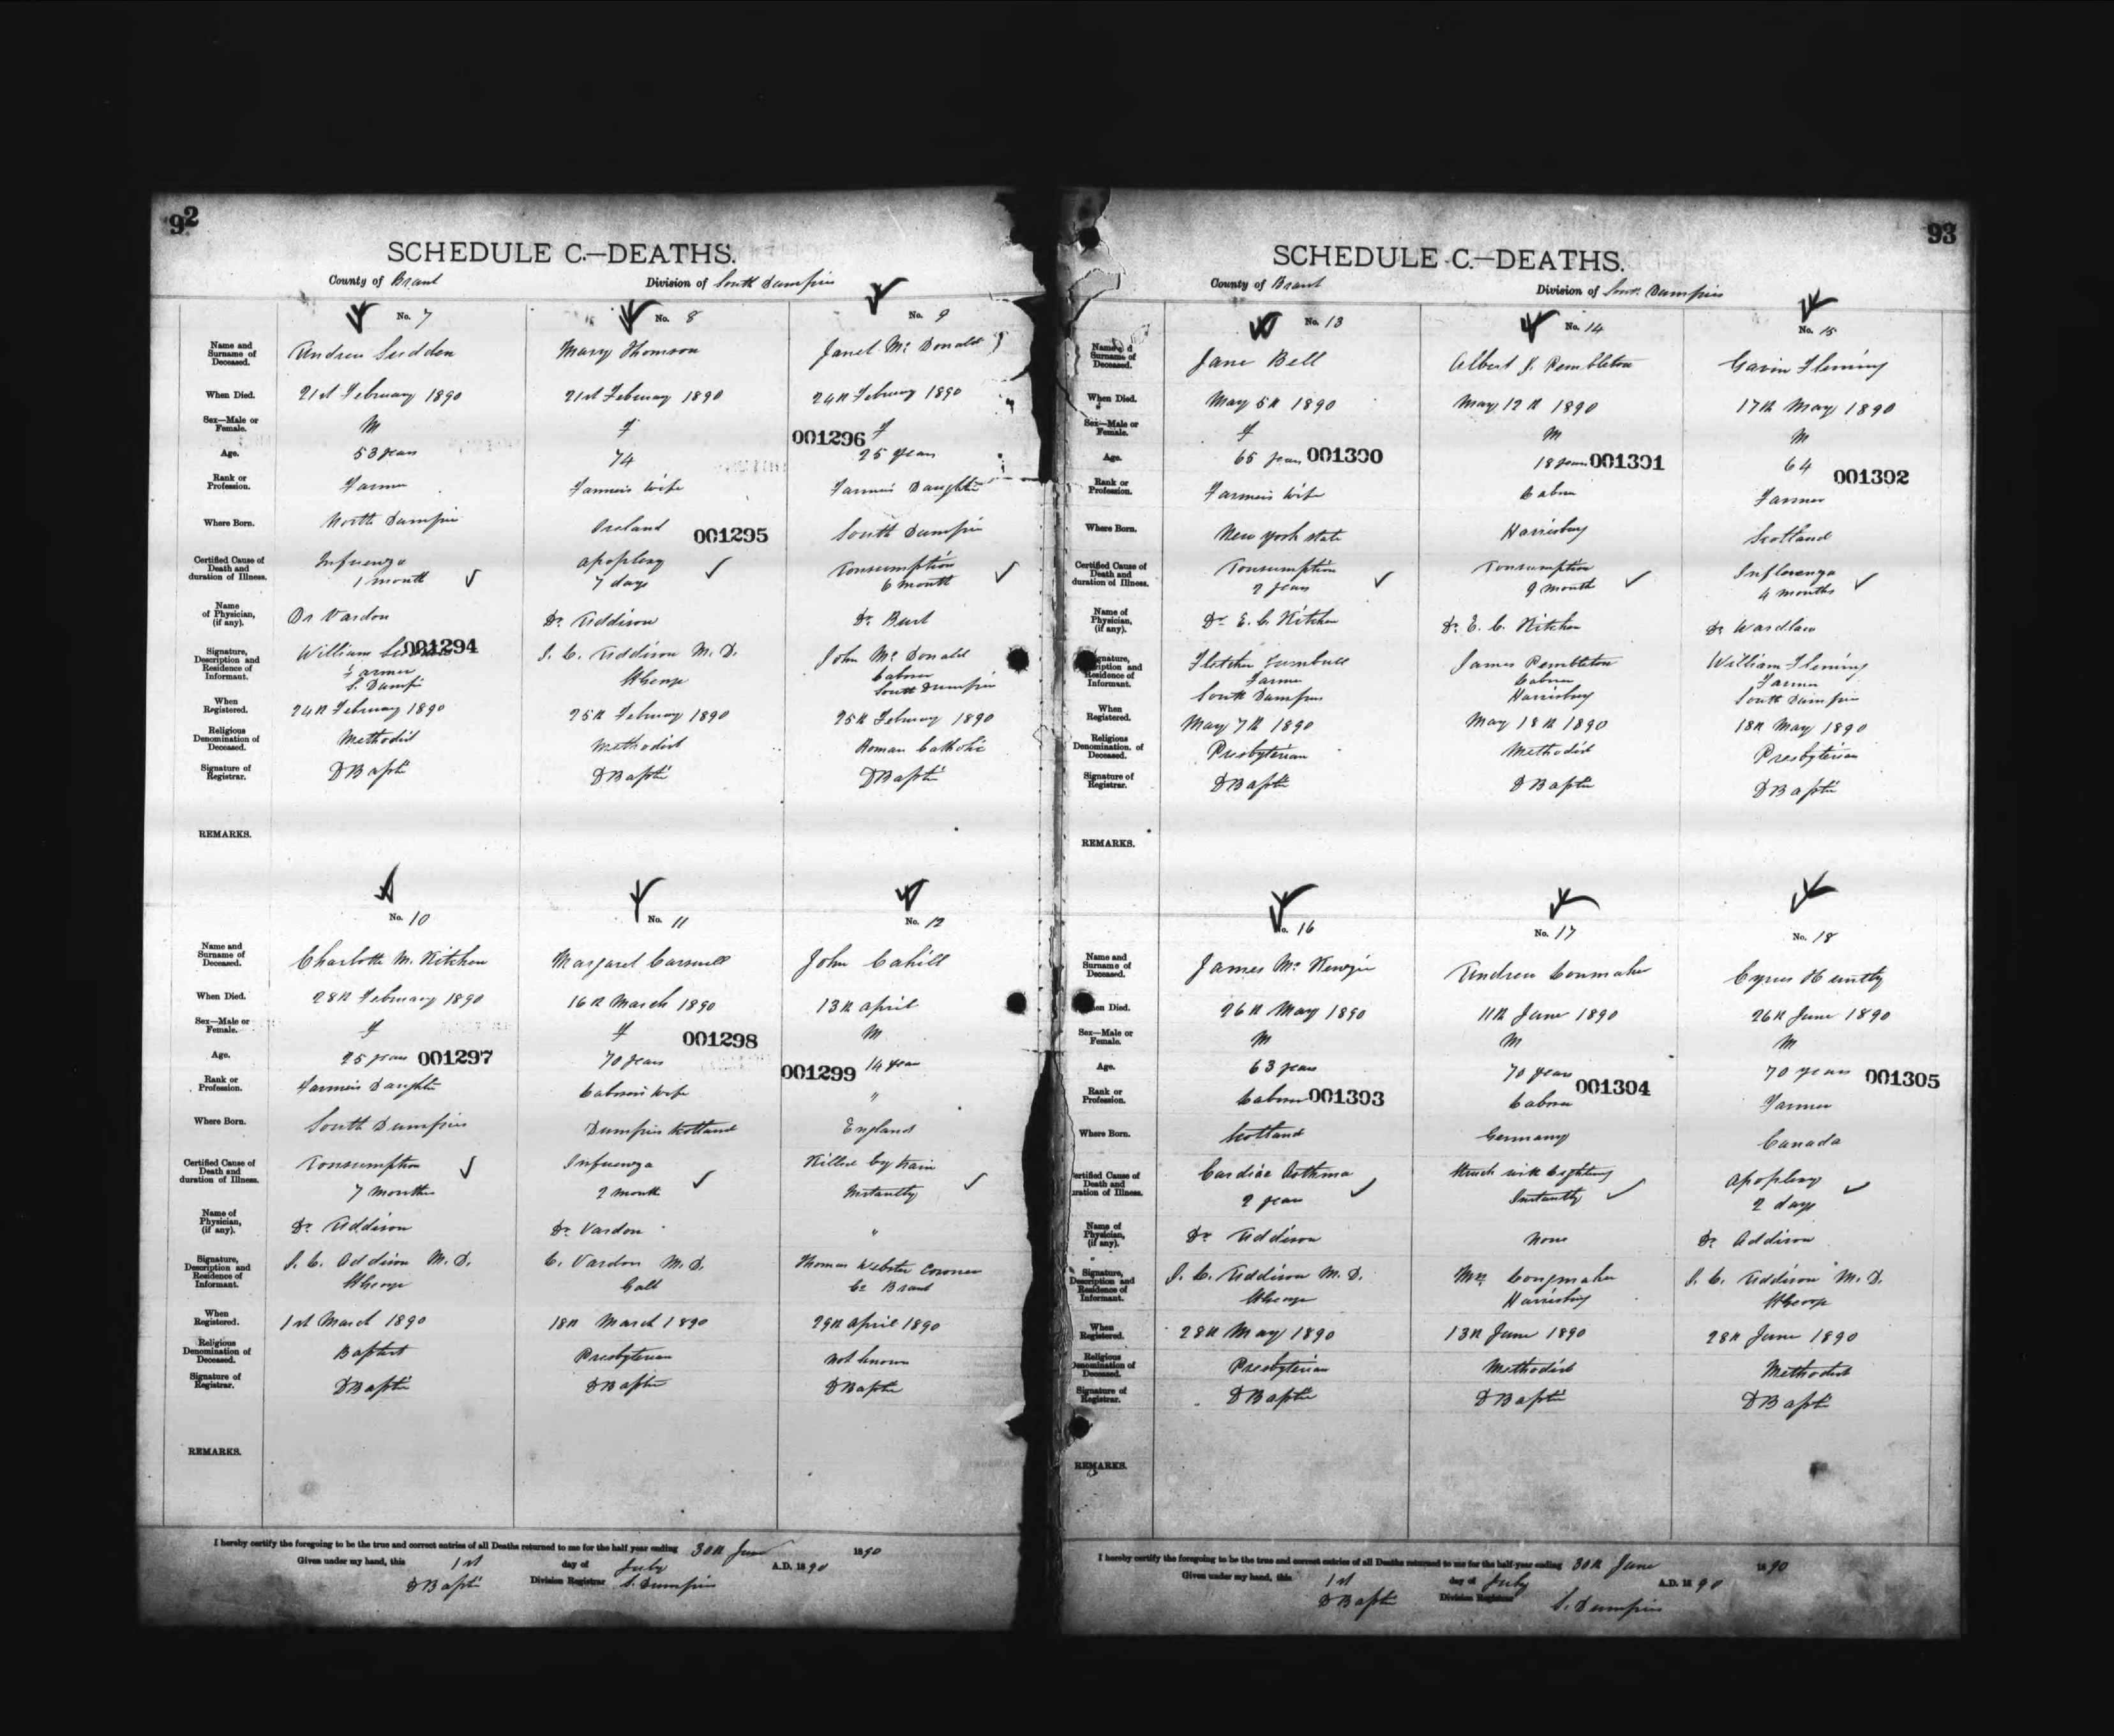 92
SCHEDULE C.—DEATHS.
County of Brant Division of South Dumfries
No. 7 No. 8 No. 9
Name and Surname of Deceased. Andrew Sudden Mary Thomson Janet McDonald
When Died. 21st February 1890 21st February 1890 24th February 1890
Sex—Male or Female. M F F
001296
Age. 53 years 74 25 years
Rank or Profession. Farmer Farmer's Wife Farmer's Daughter
Where Born. North Dumfries Ireland South Dumfries
001295
Certified Cause of Death and duration of Illness. Influenza apoplexy Consumption
1 month 7 days 6 month
Name of Physician, (if any). Dr Vardon Dr. Addison Dr. Burt
001294
Signature, Description and Residence of Informant. William J. C. Addison M. D. John McDonald
Farmer St George Laborer
S. Dumfries South Dumfries
When Registered. 24th February 1890 25th February 1890 25th February 1890
Religious Denomination of Deceased. Methodist Methodist Roman Catholic
Signature of Registrar. D Baptie D Baptie D Baptie
REMARKS.
No. 10 No. 11 No. 12
Name and Surname of Deceased. Charlotte M. Kitchen Margaret Carswell John Cahill
When Died. 28th February 1890 16th March 1890 13th April
Sex—Male or Female. F F M
001298
Age. 25 years 001297 70 years 14 years
001299
Rank or Profession. Farmer's Daughter Laborer's Wife "
Where Born. South Dumfries Dumfries Scotland England
Certified Cause of Death and duration of Illness. Consumption Influenza Killed by train
7 months 2 month Instantly
Name of Physician, (if any). Dr. Addison Dr. Vardon "
Signature, Description and Residence of Informant. J. C. Addison M. D. C. Vardon M. D. Thomas Webster Coroner
St George Galt Co Brant
When Registered. 1st March 1890 18th March 1890 29th April 1890
Religious Denomination of Deceased. Baptist Presbyterian not known
Signature of Registrar. D Baptie D Baptie D Baptie
REMARKS.
I hereby certify the foregoing to be the true and correct entries of all Deaths returned to me for the half year ending 30th June 1890
Given under my hand, this 1st day of July A.D. 1890
D Baptie Division Registrar S. Dumfries
93
SCHEDULE C.—DEATHS.
County of Brant Division of South Dumfries
No. 13 No. 14 No. 15
Name and Surname of Deceased. Jane Bell Albert J. Pembleton Gavin Fleming
When Died. May 5th 1890 May 12th 1890 17th May 1890
Sex—Male or Female. F M M
Age. 65 years 001300 18 years 001301 64 001302
Rank or Profession. Farmer's Wife Laborer Farmer
Where Born. New York State Harrisburg Scotland
Certified Cause of Death and duration of Illness. Consumption Consumption Influenza
2 years 9 month 4 months
Name of Physician, (if any). Dr. E. C. Kitchen Dr. E. C. Kitchen Dr Wardlaw
Signature, Description and Residence of Informant. Fletcher Turnbull James Pembleton William Fleming
Farmer Laborer Farmer
South Dumfries Harrisburg South Dumfries
When Registered. May 7th 1890 May 18th 1890 18th May 1890
Religious Denomination. of Deceased. Presbyterian Methodist Presbyterian
Signature of Registrar. D Baptie D Baptie D Baptie
REMARKS.
No. 16 No. 17 No. 18
Name and Surname of Deceased. James McKenzie Andrew
When Died. 26th May 1890 11th June 1890 26th June 1890
Sex—Male or Female. M M M
Age. 63 years 70 years 70 years 001305
Rank or Profession. Laborer 001303 Laborer 001304 Farmer
Where Born. Scotland Germany Canada
Certified Cause of Death and duration of Illness. Cardiac Asthma Struck with Lightning apoplexy
2 years Instantly 2 days
Name of Physician, (if any). Dr. Addison None Dr. Addison
Signature, Description and Residence of Informant. J. C. Addison M. D. Mrs J. C. Addison M. D.
St George Harrisburg St George
When Registered. 28th May 1890 13th June 1890 28th June 1890
Religious Denomination of Deceased. Presbyterian Methodist Methodist
Signature of Registrar. D Baptie D Baptie D Baptie
REMARKS.
I hereby certify the foregoing to be the true and correct entries of all Deaths returned to me for the half-year ending 30th June 1890
Given under my hand, this 1st day of July A.D. 1890
D Baptie Division Registrar S. Dumfries